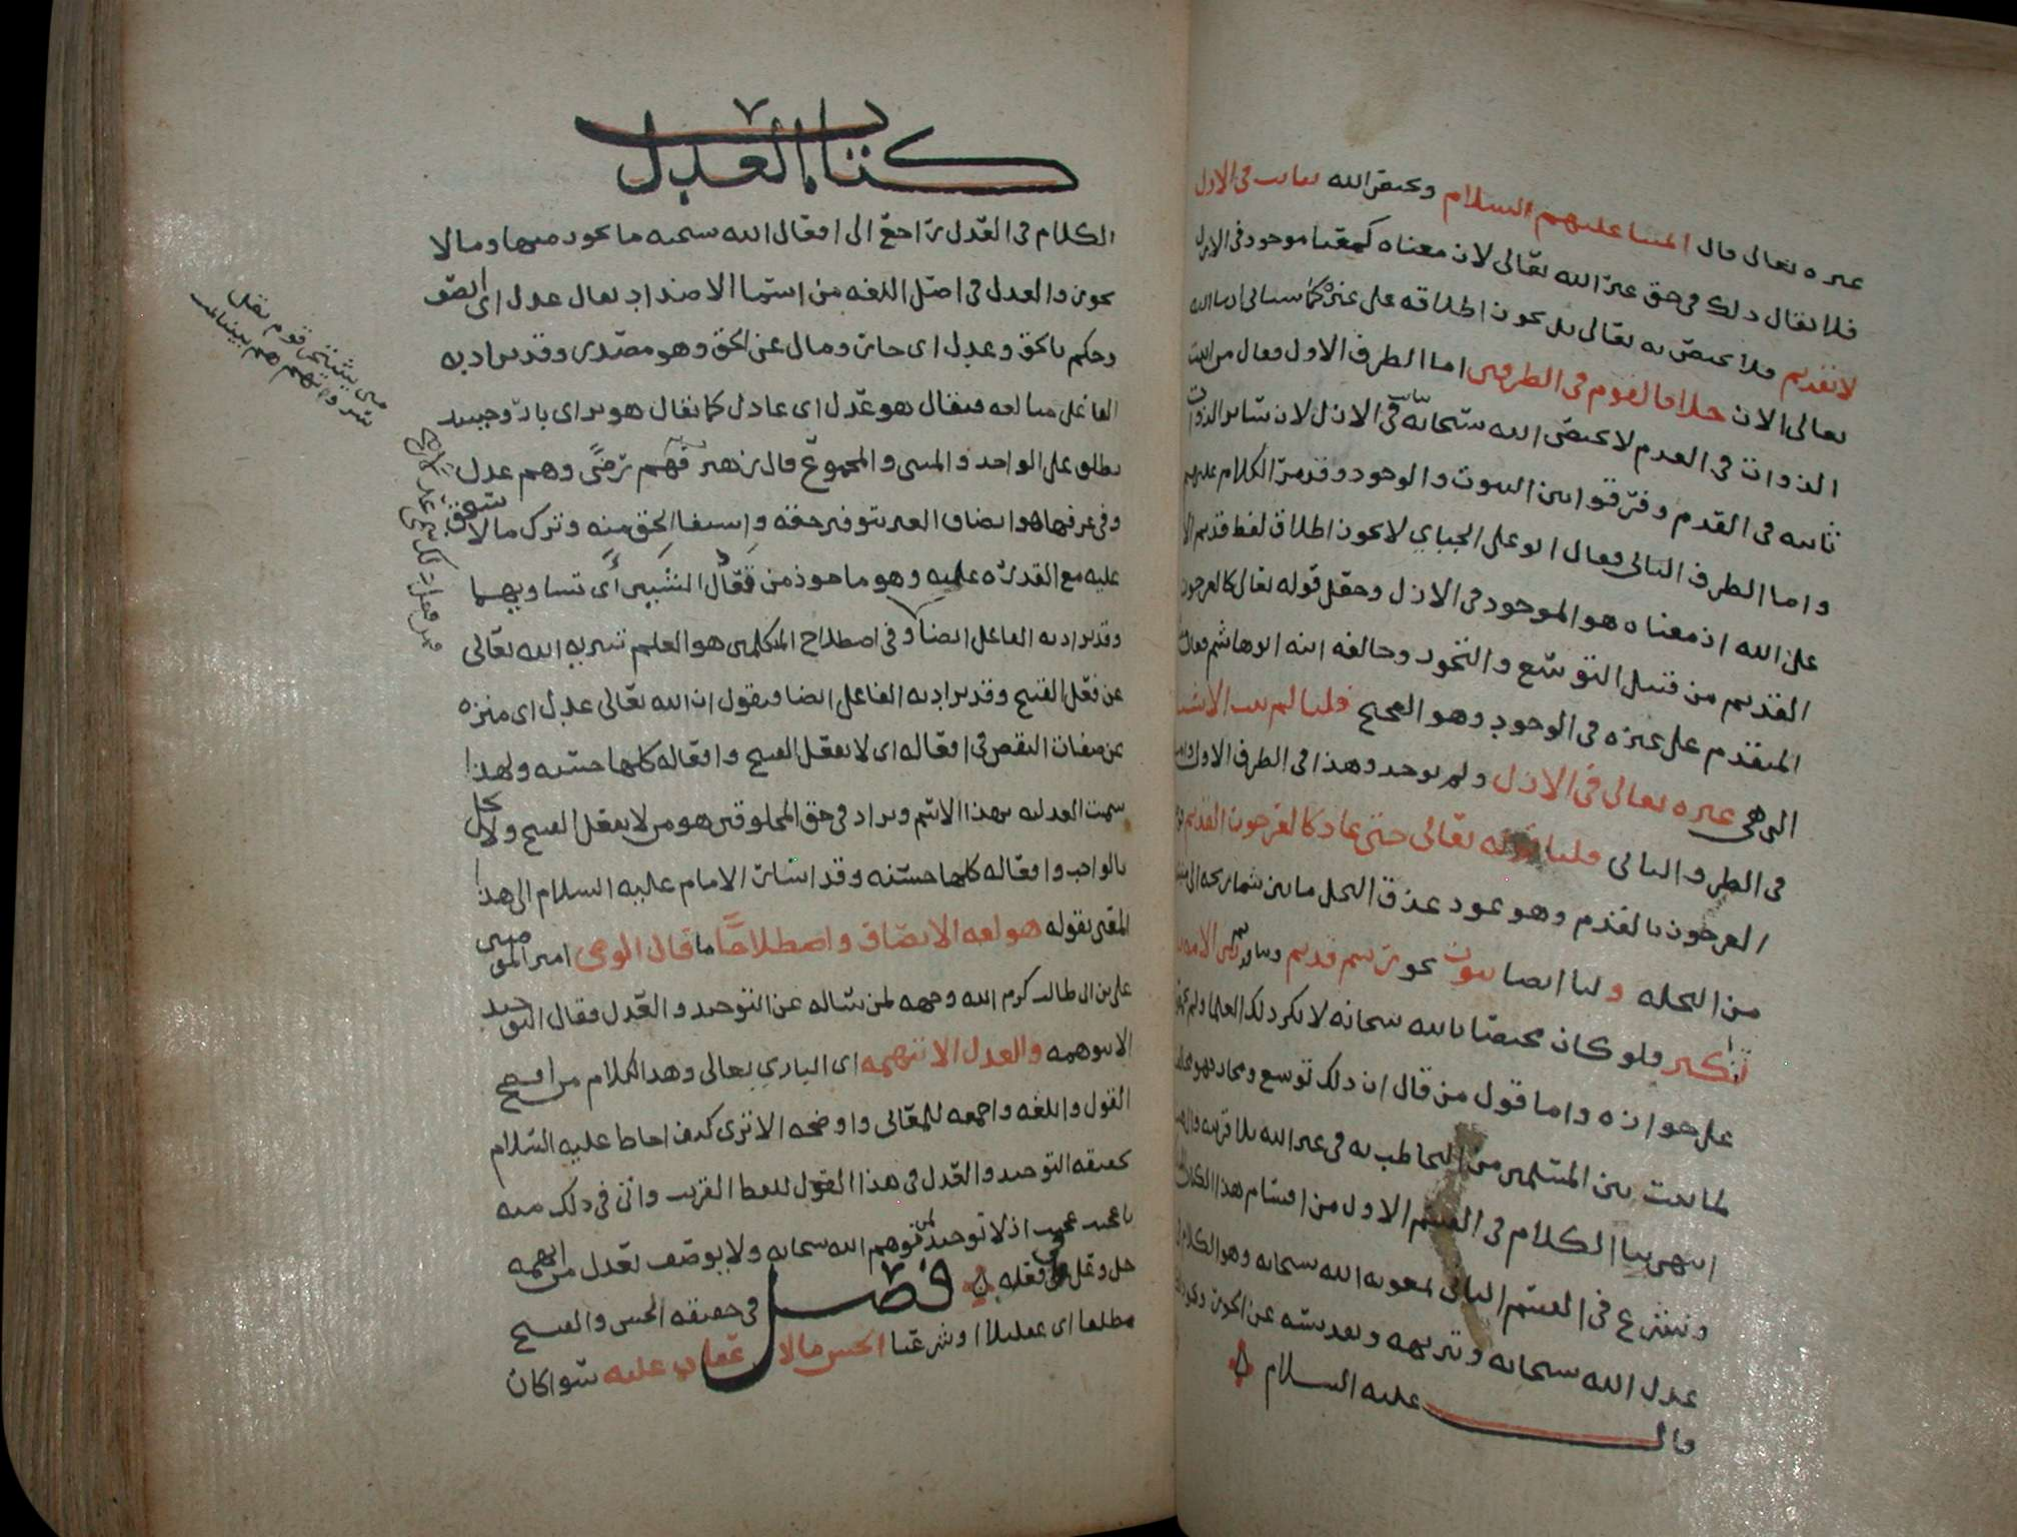 غيره تعالى قال ائمتنا عليهم السلام ويختص الله تعالى في الازل
فلا يقال ذلك في حق غير الله تعالى لان معناه كمعنى موجود في الازل
لا بقديم فلا يختص به تعالى بل يجوز اطلاقه على غيره كما سياتي ان شا الله
تعالى الان خلافا لقوم في الطرفين اما الطرف الاول فقال من اثبت
الذوات في العدم لا يختص الله سبحانه ثابت في الازل لان سائر الذوات
ثابته في القدم وفرقوا بين الثبوت والوجود وقد مر الكلام عليهم
واما الطرف الثاني فقال ابو علي الجبائي لا يجوز اطلاق لفظ قديم الا
على الله اذ معناه هو الموجود في الازل وجعل قوله تعالى كالعرجون
القديم من قبيل التوسع والتجوز وخالفه ابنه ابو هاشم فقال
المتقدم على غيره في الوجود وهو الصحيح قلنا لم تثبت الاشيا
التي هي غيره تعالى في الازل ولم توجد وهذا في الطرف الاول
في الطرف الثاني قلنا قوله تعالى حتى عاد كالعرجون القديم
العرجون بالقدم وهو عود عذق النخل ما بين شماريخه الى
من النخله ولنا ايضا ثبوت نحو رسم قديم وبنا قديم من الامه بلا
تنكير فلو كان مختصا بالله سبحانه لانكر ذلك العلما ولم
على جوازه واما قول من قال ان ذلك توسع ومجاز فهو
لما ثبت بين المسلمين من التخاطب به في غير الله بلا قرينه
انتهى بنا الكلام في القسم الاول من اقسام هذا الكتاب
ونشرع في القسم الثاني بمعونه الله سبحانه وهو الكلام في
عدل الله سبحانه وتنزيهه وتقديسه عن الجور
قال عليه السلام
كتاب العدل
الكلام في العدل راجع الى افعال الله سبحنه ما يجوز منها وما لا
يجوز والعدل في اصل اللغه من اسما الاضداد يقال عدل اي انصف
وحكم بالحق وعدل اي جار ومال عن الحق وهو مصدر وقد يراد به
الفاعل مبالغه فيقال هو عدل اي عادل كما يقال هو بر اي بار وحينئذ
يطلق على الواحد والمثنى والمجموع قال زهير فهم رضى وهم عدل
وفي عرفها هو انصاف الغير بتوفير حقه واستيفا الحق منه وترك ما لا يستحق
عليه مع القدره عليه وهو ماخوذ من تعادل الشيئين اي تساويهما
وقد يراد به الفاعل ايضا وفي اصطلاح المتكلمين هو العلم بتنزيه الله تعالى
عن فعل القبيح وقد يراد به الفاعل ايضا فيقول ان الله تعالى عدل اي منزه
عن صفات النقص في افعاله اي لا يفعل القبيح وافعاله كلها حسنه ولهذا
سميت العدليه بهذا الاسم ويراد في حق المخلوقين هو من لا يفعل القبيح ولا يخل
بالواجب وافعاله كلها حسنه وقد اشار الامام عليه السلام الى هذا
المعنى بقوله هو لغه الانصاف واصطلاحا ما قال الوصي امير المومنين
علي بن ابي طالب كرم الله وجهه لمن ساله عن التوحيد والعدل فقال التوحيد
الا تتوهمه والعدل الا تتهمه اي الباري تعالى وهذا الكلام من افصح
القول وابلغه واجمعه للمعاني واوضحه الا ترى كيف احاط عليه السلام
بحقيقه التوحيد والعدل في هذا القول للفظ القريب واتى في ذلك منه
باعجب عجيب اذ لا توحيد لمن توهم الله سبحانه ولا يوصف بعدل من اتهمه
جل وعلا في فعله فصل في حقيقه الحسن والقبيح
مطلقا اي عقليا او شرعيا الحسن ما لا عقاب عليه سوا كان